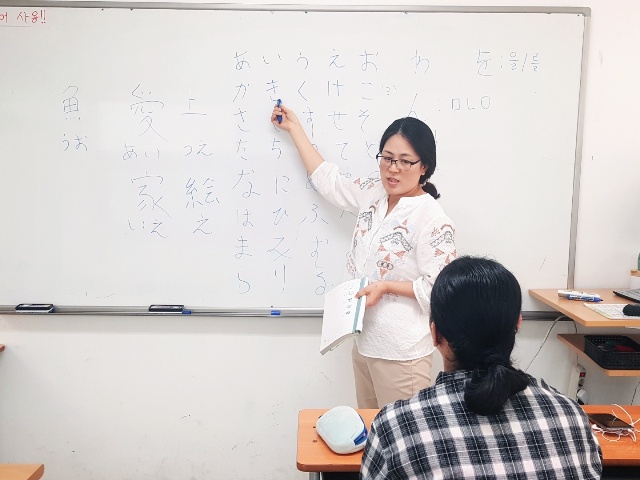 어 사용!!
を:을/를
わ
ん:ㅁㄴㅇ
おこそと
えけせて
うくす ふむる
いき ちにひみり
あかさたなはまら
うえ
絵
え
愛
あい
家
いえ
魚
うお